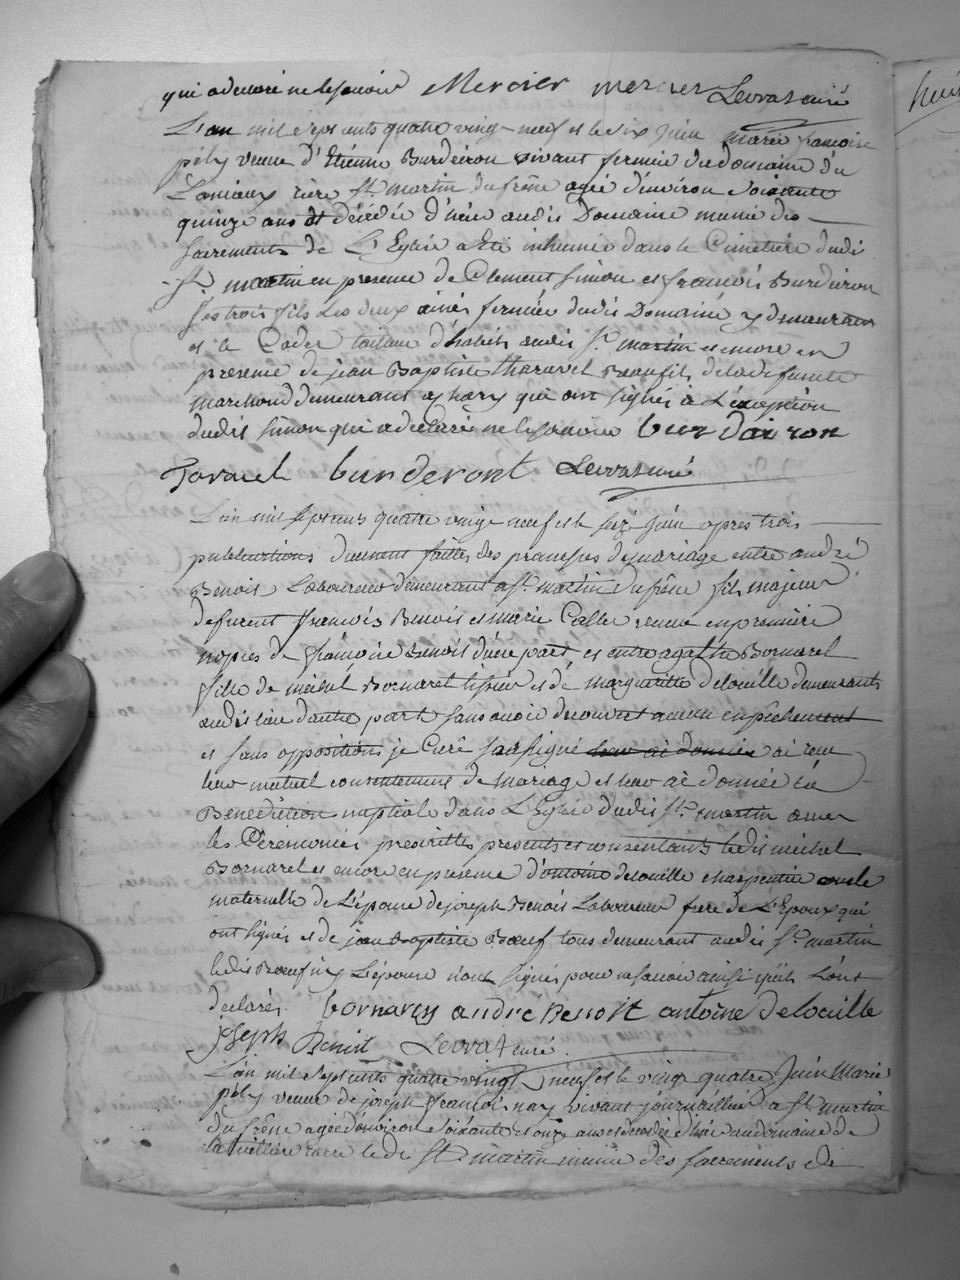 qui a declaré ne le savoir Mercier mercier Levvas curé
L'an mil sept cents quatre vingt-neuf et le six juin marie francoise
pely veuve d'Etienne Burdeiron vivant fermier du domaine du
rière St martin du frêne agée d'environ soixante
quinze ans et décédée d'hier audit Domaine munie des
sacrements de L'Eglise a Eté inhumée dans le Cimetière dudit
St martin en presence de Clement simon et francois Burdeiron
ses trois fils Les deux ainés fermiers dudit Domaine y demeurans
et le Cadet tailleur d'habits audit St martin et encore en
presence de jean Baptiste tharavel Beaufils de la defunte
marchand demeurant a qui ont signés à L'éxception
dudit simon qui a declaré ne le savoir burdairon
Taravel burderont Levvas curé
L'an mil sept cents quatre vingt neuf et le juin apres trois
publications duement faittes des promesses de mariage entre andré
Benoit Laboureur demeurant a St martin du frêne fils majeur
defunt francois Benoit et marie Calle veuve en premiere
nopces de francoise Benoit d'une part et entre agathe Bornarel
fille de michel Bornarel tissier et de margueritte delouille demeurants
audit lieu d'autre part sans avoir decouvert aucun empêchement
et sans opposition je Curé soussigné leur ai donnée ai recu
leur mutuel consentement de mariage et leur ai donnée la
Benediction nuptiale dans L'Eglise dudit St martin avec
les Cérémonies prescrittes presents et consentants ledit michel
Bornarel et encore en presence d'antoine delouille charpentier oncle
maternelle de L'épouse de joseph Benoit Laboureur frere de L'Epoux qui
ont signés et de jean Baptiste Bœuf tous demeurant audit St martin
ledit Bœuf ny L'épouse n'ont signés pour ne savoir ainsi qu'ils L'ont
declarés. bornarel andre Benoit antoine delouille
joseph Benoit Levvas curé.
L'an mil sept cents quatre vingt neuf et le vingt quatre Juin Marie
pely veuve de joseph francois nay vivant journaillier a St martin
du frêne agée d'environ soixante et onze ans et decedée d'hier audomaine de
rière le dit St martin munie des sacrements de